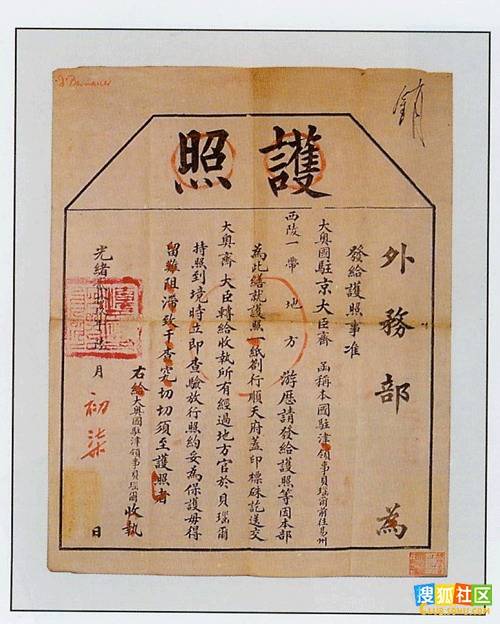 護照
外務部為
發給護照事准
大奧國駐京大臣齊 函稱本國駐津領事貝瑙爾前往易州
西陵一帶地方 游歷請發給護照等因本部
為此繕就護照一紙劄行順天府蓋印標硃訖送交
大奧齊大臣轉給收執所有經過地方官於貝瑙爾
持照到境時立即查驗放行照約妥為保護毋得
留難阻滯致干查究切切須至護照者
右給大奧國駐津領事貝瑙爾收執
光緒 月初柒日
銷
搜狐社区
CLUB.SOHU.COM